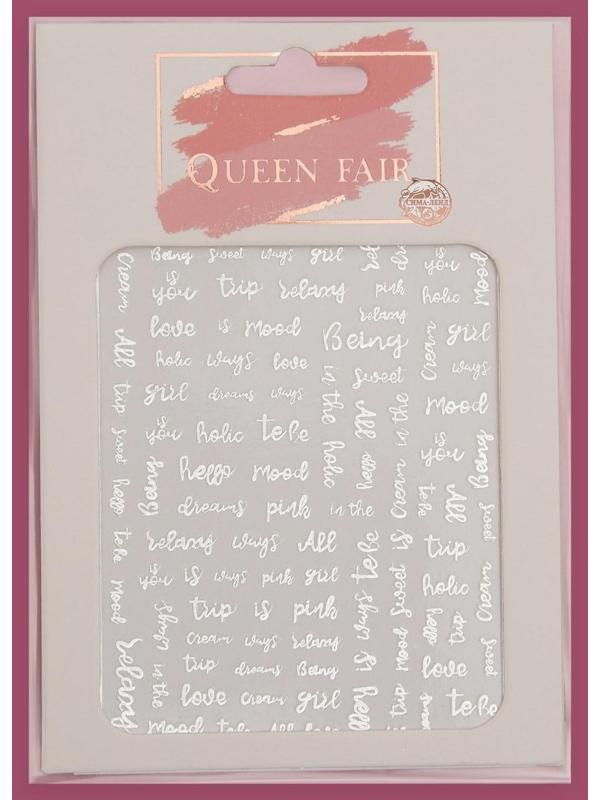 QUEEN FAIR
СИМА-ЛЕНД
Being sweet ways girl
is you trip relaxy pink holic
relaxy
love is mood Being girl
holic ways love sweet ways
girl dreams ways mood
is you holic tebe is you
hello mood
dreams pink in the
relaxy ways All trip
is you is ways pink girl holic
trip is pink
Cream ways relaxy
trip dreams Being love
love Cream girl tebe
mood tebe All love
Cream All trip sweet hello tebe mood relaxy
Being
ways in the
in the holic
All hello
tebe ways is hello
Cream in the
sweet is mood trip
Cream
tebe
All
hello trip
mood
Being sweet
Cream sweet